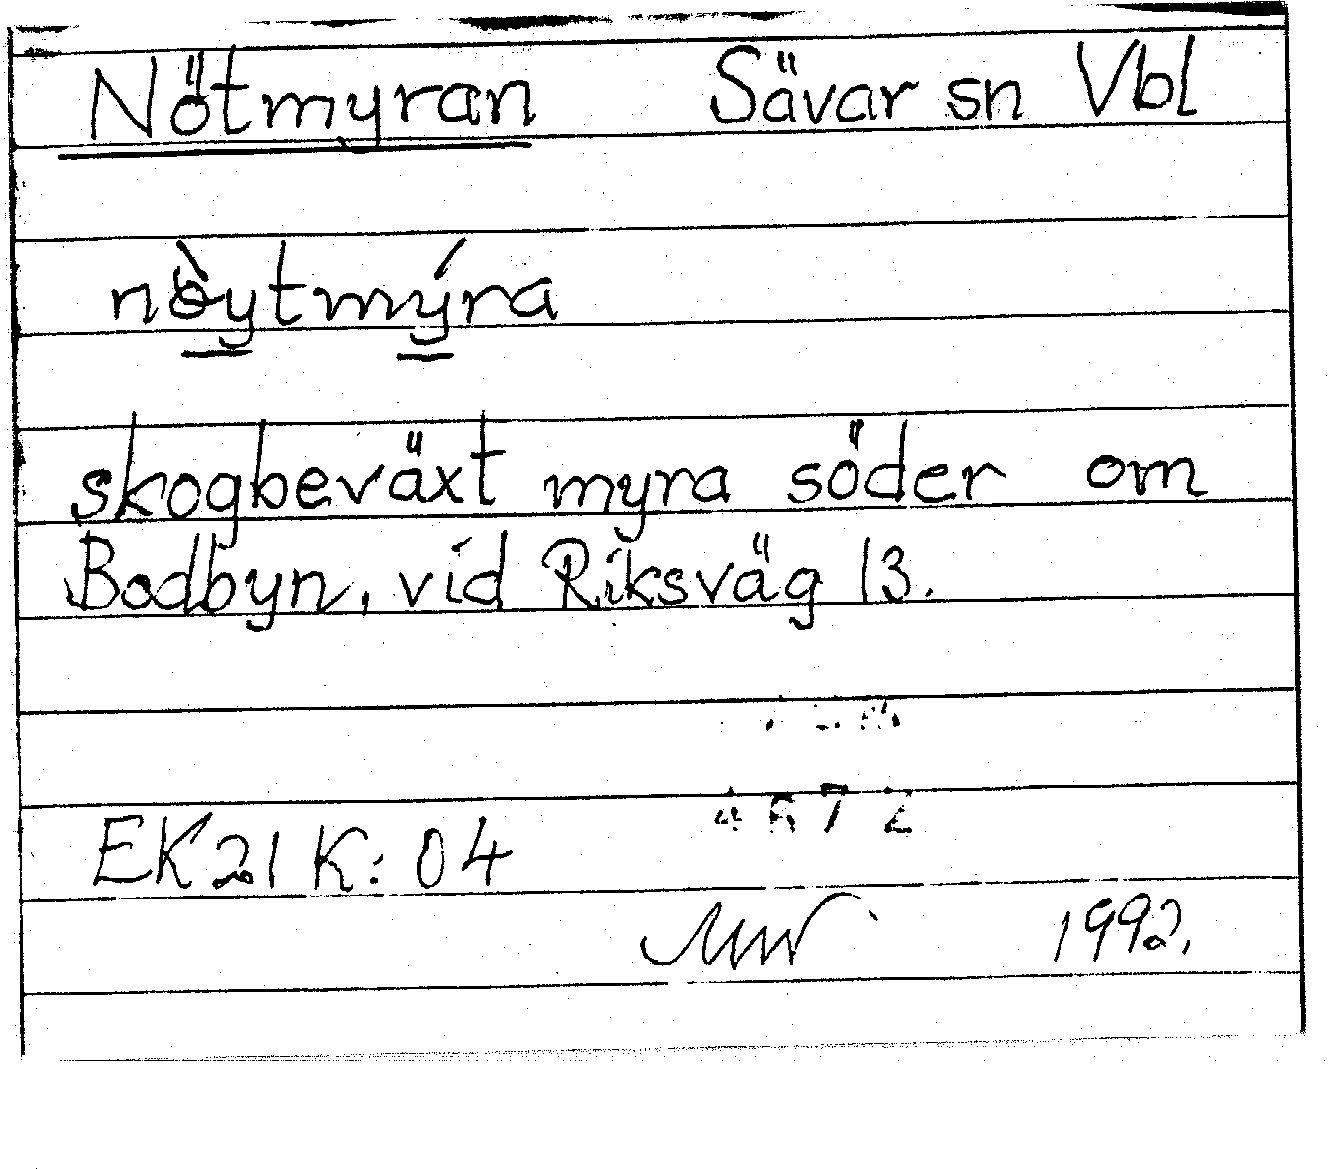 Nötmyran Sävar sn Vbl
nòytmýra
skogbeväxt myra söder om
Bodbyn, vid Riksväg 13.
4672
EK21K:04
MW 1992.